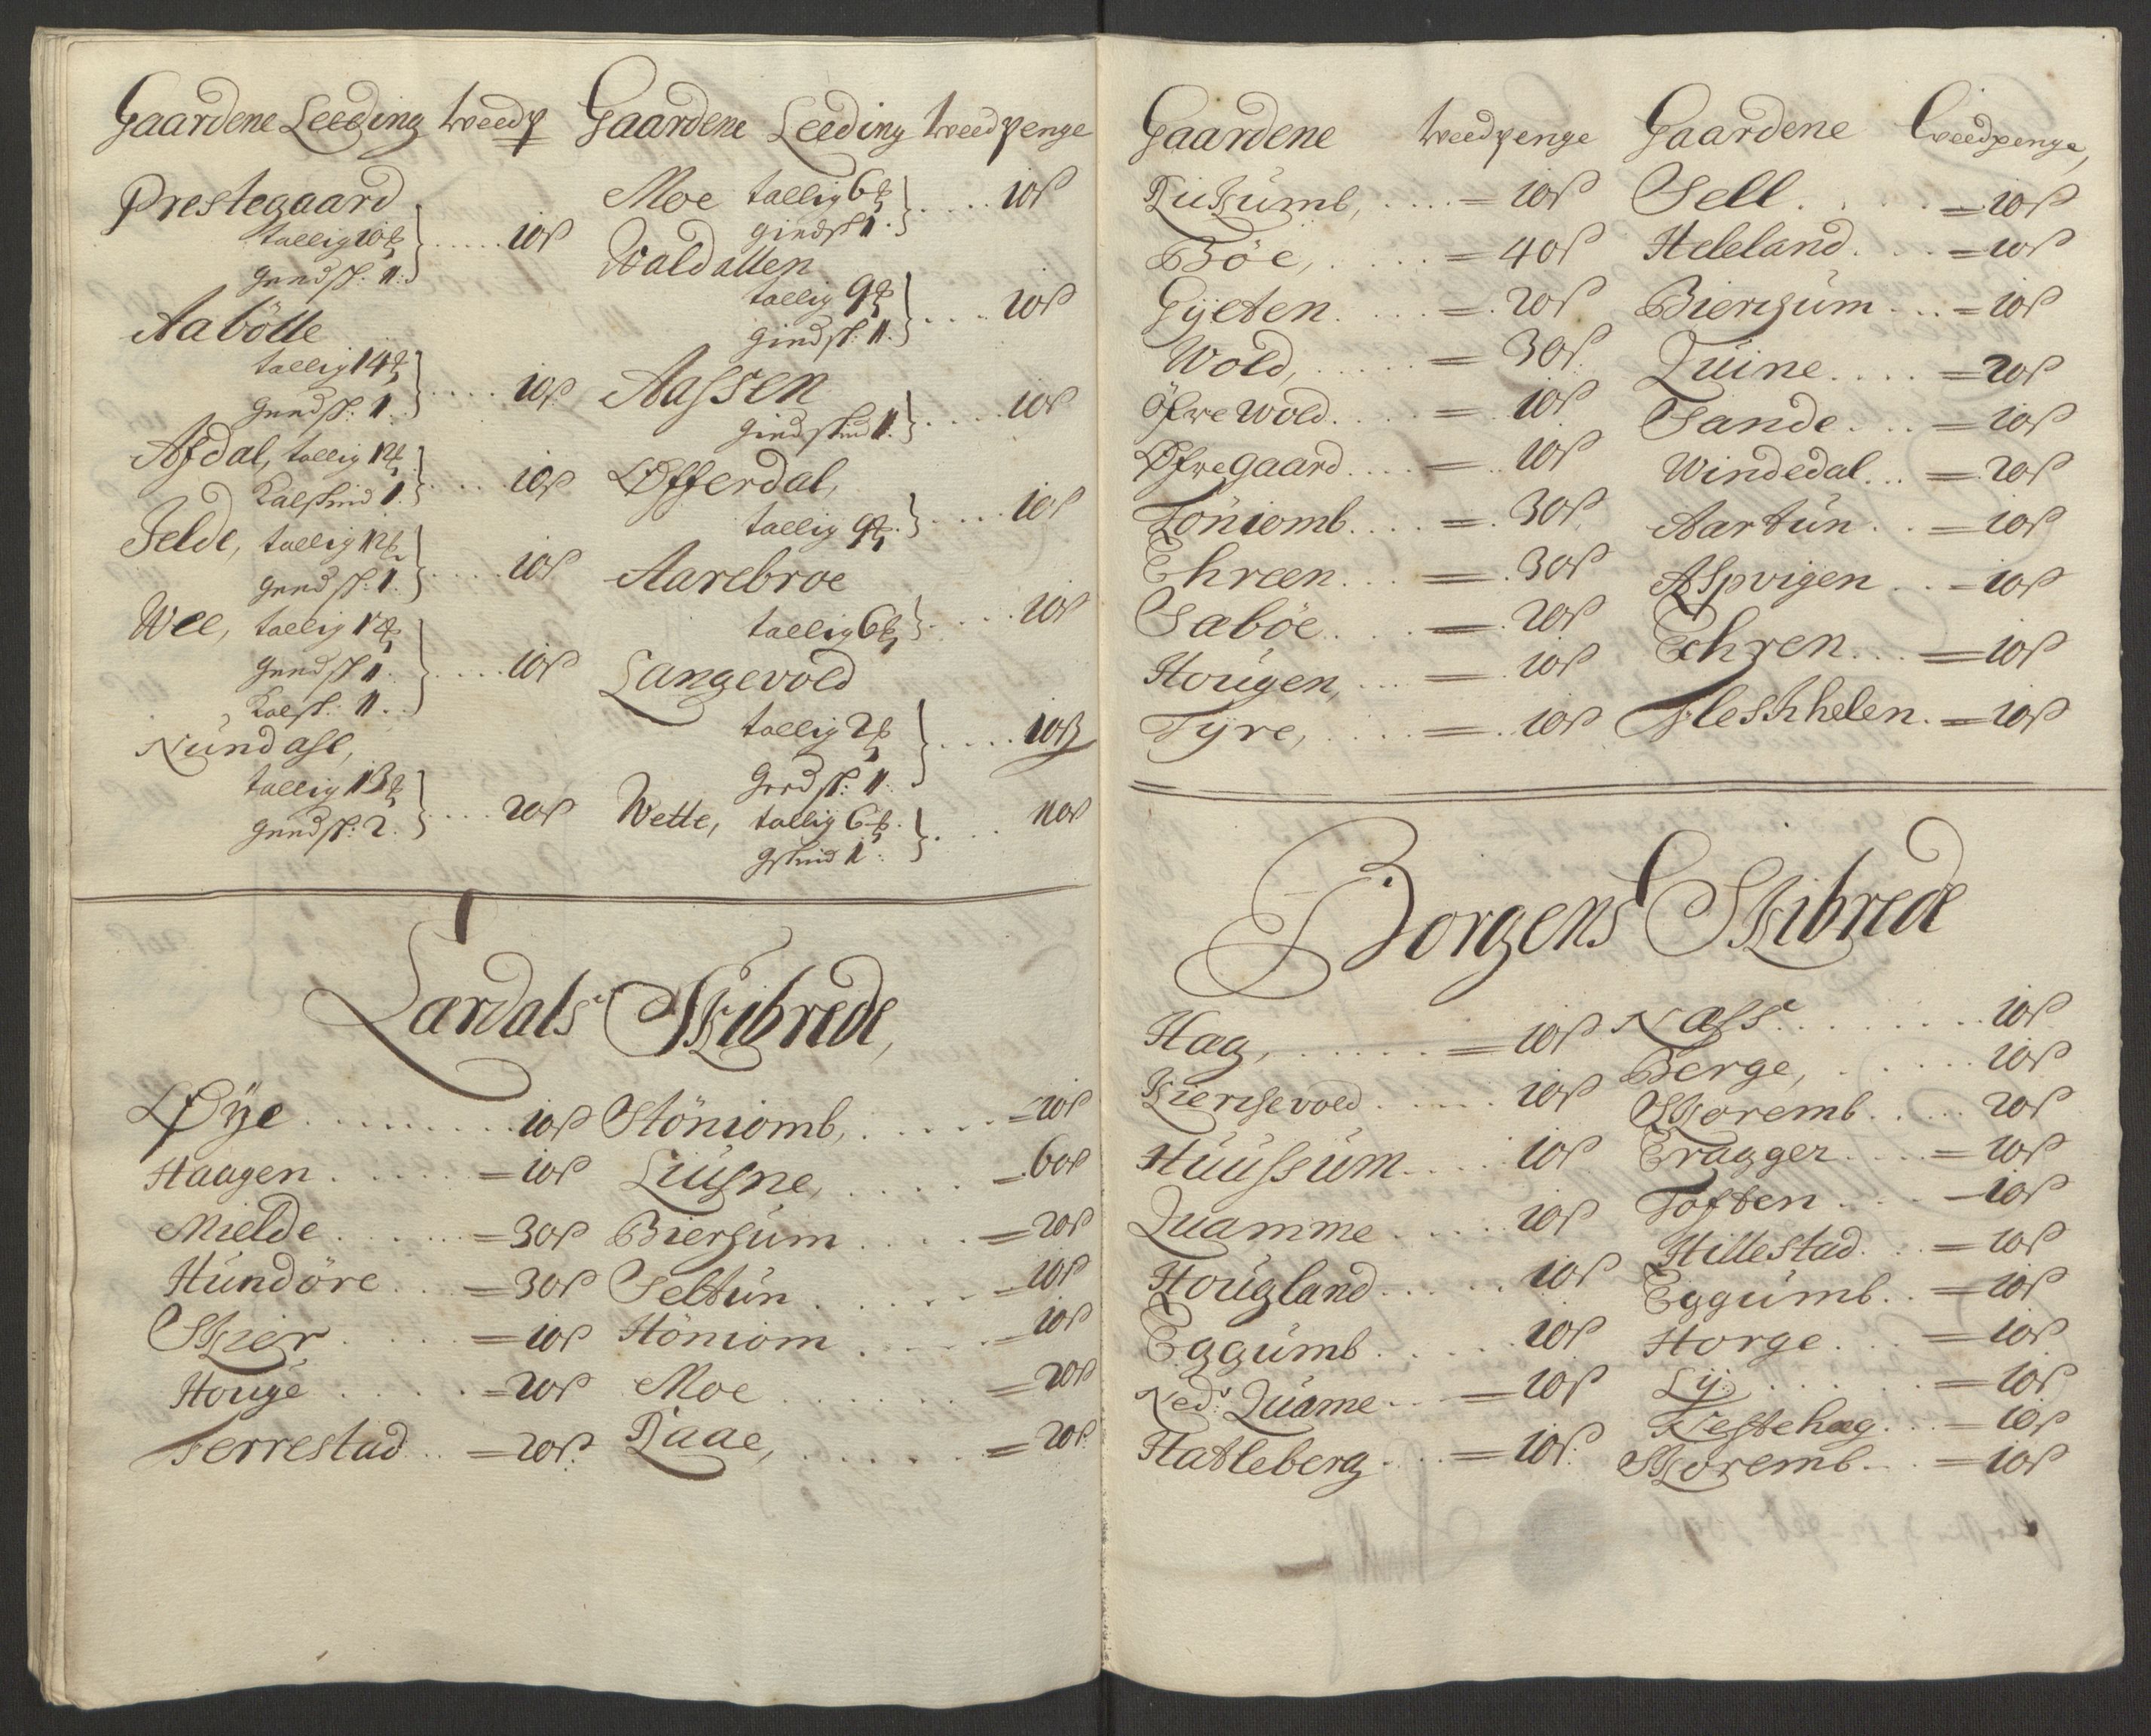 Gaardene Leeding weedp
Prestegaard
tallig 10
giedsk: 1 ..... 10 ß
Aabötte
tallig 14
giedsk: 1 .... 10 ß
Afdal, tallig 12
Kalskind 1 .... 10 ß
Jelde, tallig 12
giedsk: 1 .... 10 ß
Wee, tallig
giedsk 1
Kalsk: 1 .... 10 ß
Nundahl,
tallig 13
giedsk: 2 .... 20 ß
Gaardene Leeding weedpenge
Moe tallig 6
giedsk 1 .... 10 ß
Waldatten
tallig 9
giedsk: 1 .... 10 ß
Aassen
giedskind 1 .... 10 ß
Offerdal,
tallig 9 .... 10 ß
Aarebroe
tallig 6 .... 10 ß
Langevold
tallig 2
giedsk: 1 .... 10 ß
Wette, tallig 6
gskind 1 .... 10 ß
Lærdals Skibrede,
Øÿe ......... 10 ß
Haagen ..... = 10 ß
Mielde ..... = 30 ß
Hundöre ... = 30 ß
Skier ..... = 10 ß
Houge ..... = 20 ß
Ferrestad .. = 20 ß
Stöniomb, ..... = 10 ß
Liusne, ..... = 60 ß
Biergum .... = 20 ß
Seltun ..... = 10 ß
Höniom ..... = 10 ß
Moe ....... = 20 ß
Raae, ...... = 20 ß
Gaardene weedpenge
Rikumb, .... = 10 ß
Böe, .... = 40 ß
Gÿeten .... = 20 ß
Wold, ..... = 30 ß
Öfre Wold .... = 10 ß
Øfregaard .... = 10 ß
Töniomb .... = 30 ß
Ehreen ... = 30 ß
Sæböe .... = 20 ß
Hougen, ... = 10 ß
Tÿre, .... = 10 ß
Gaardene weedpenge,
Sell ...... = 10 ß
Heleland .... = 10 ß
Biergum ... = 10 ß
Quine .... = 20 ß
Sande ... = 10 ß
Windedal ... = 20 ß
Aartun .. = 10 ß
Aspvigen .. = 10 ß
Ehren ... = 10 ß
Fleskhelen . = 10 ß
Borgens Skibrede
Hæg, ...... = 10 ß
Kiergevold ..... 10 ß
Huussum .... 10 ß
Quamme .... 10 ß
Hougland ..... 10 ß
Eggumb ..... 10 ß
Ned: Quame .. = 10 ß
Hatleberg ... = 10 ß
Næss ........ 10 ß
Berge, ...... 10 ß
Skoremb .... 20 ß
Eragger .... = 10 ß
Toften ... = 10 ß
Hillestad .. = 10 ß
Eggumb .. = 10 ß
Horge ... = 10 ß
Lÿ ...... = 10 ß
Nestehæg ... = 10 ß
Skoremb ... = 10 ß